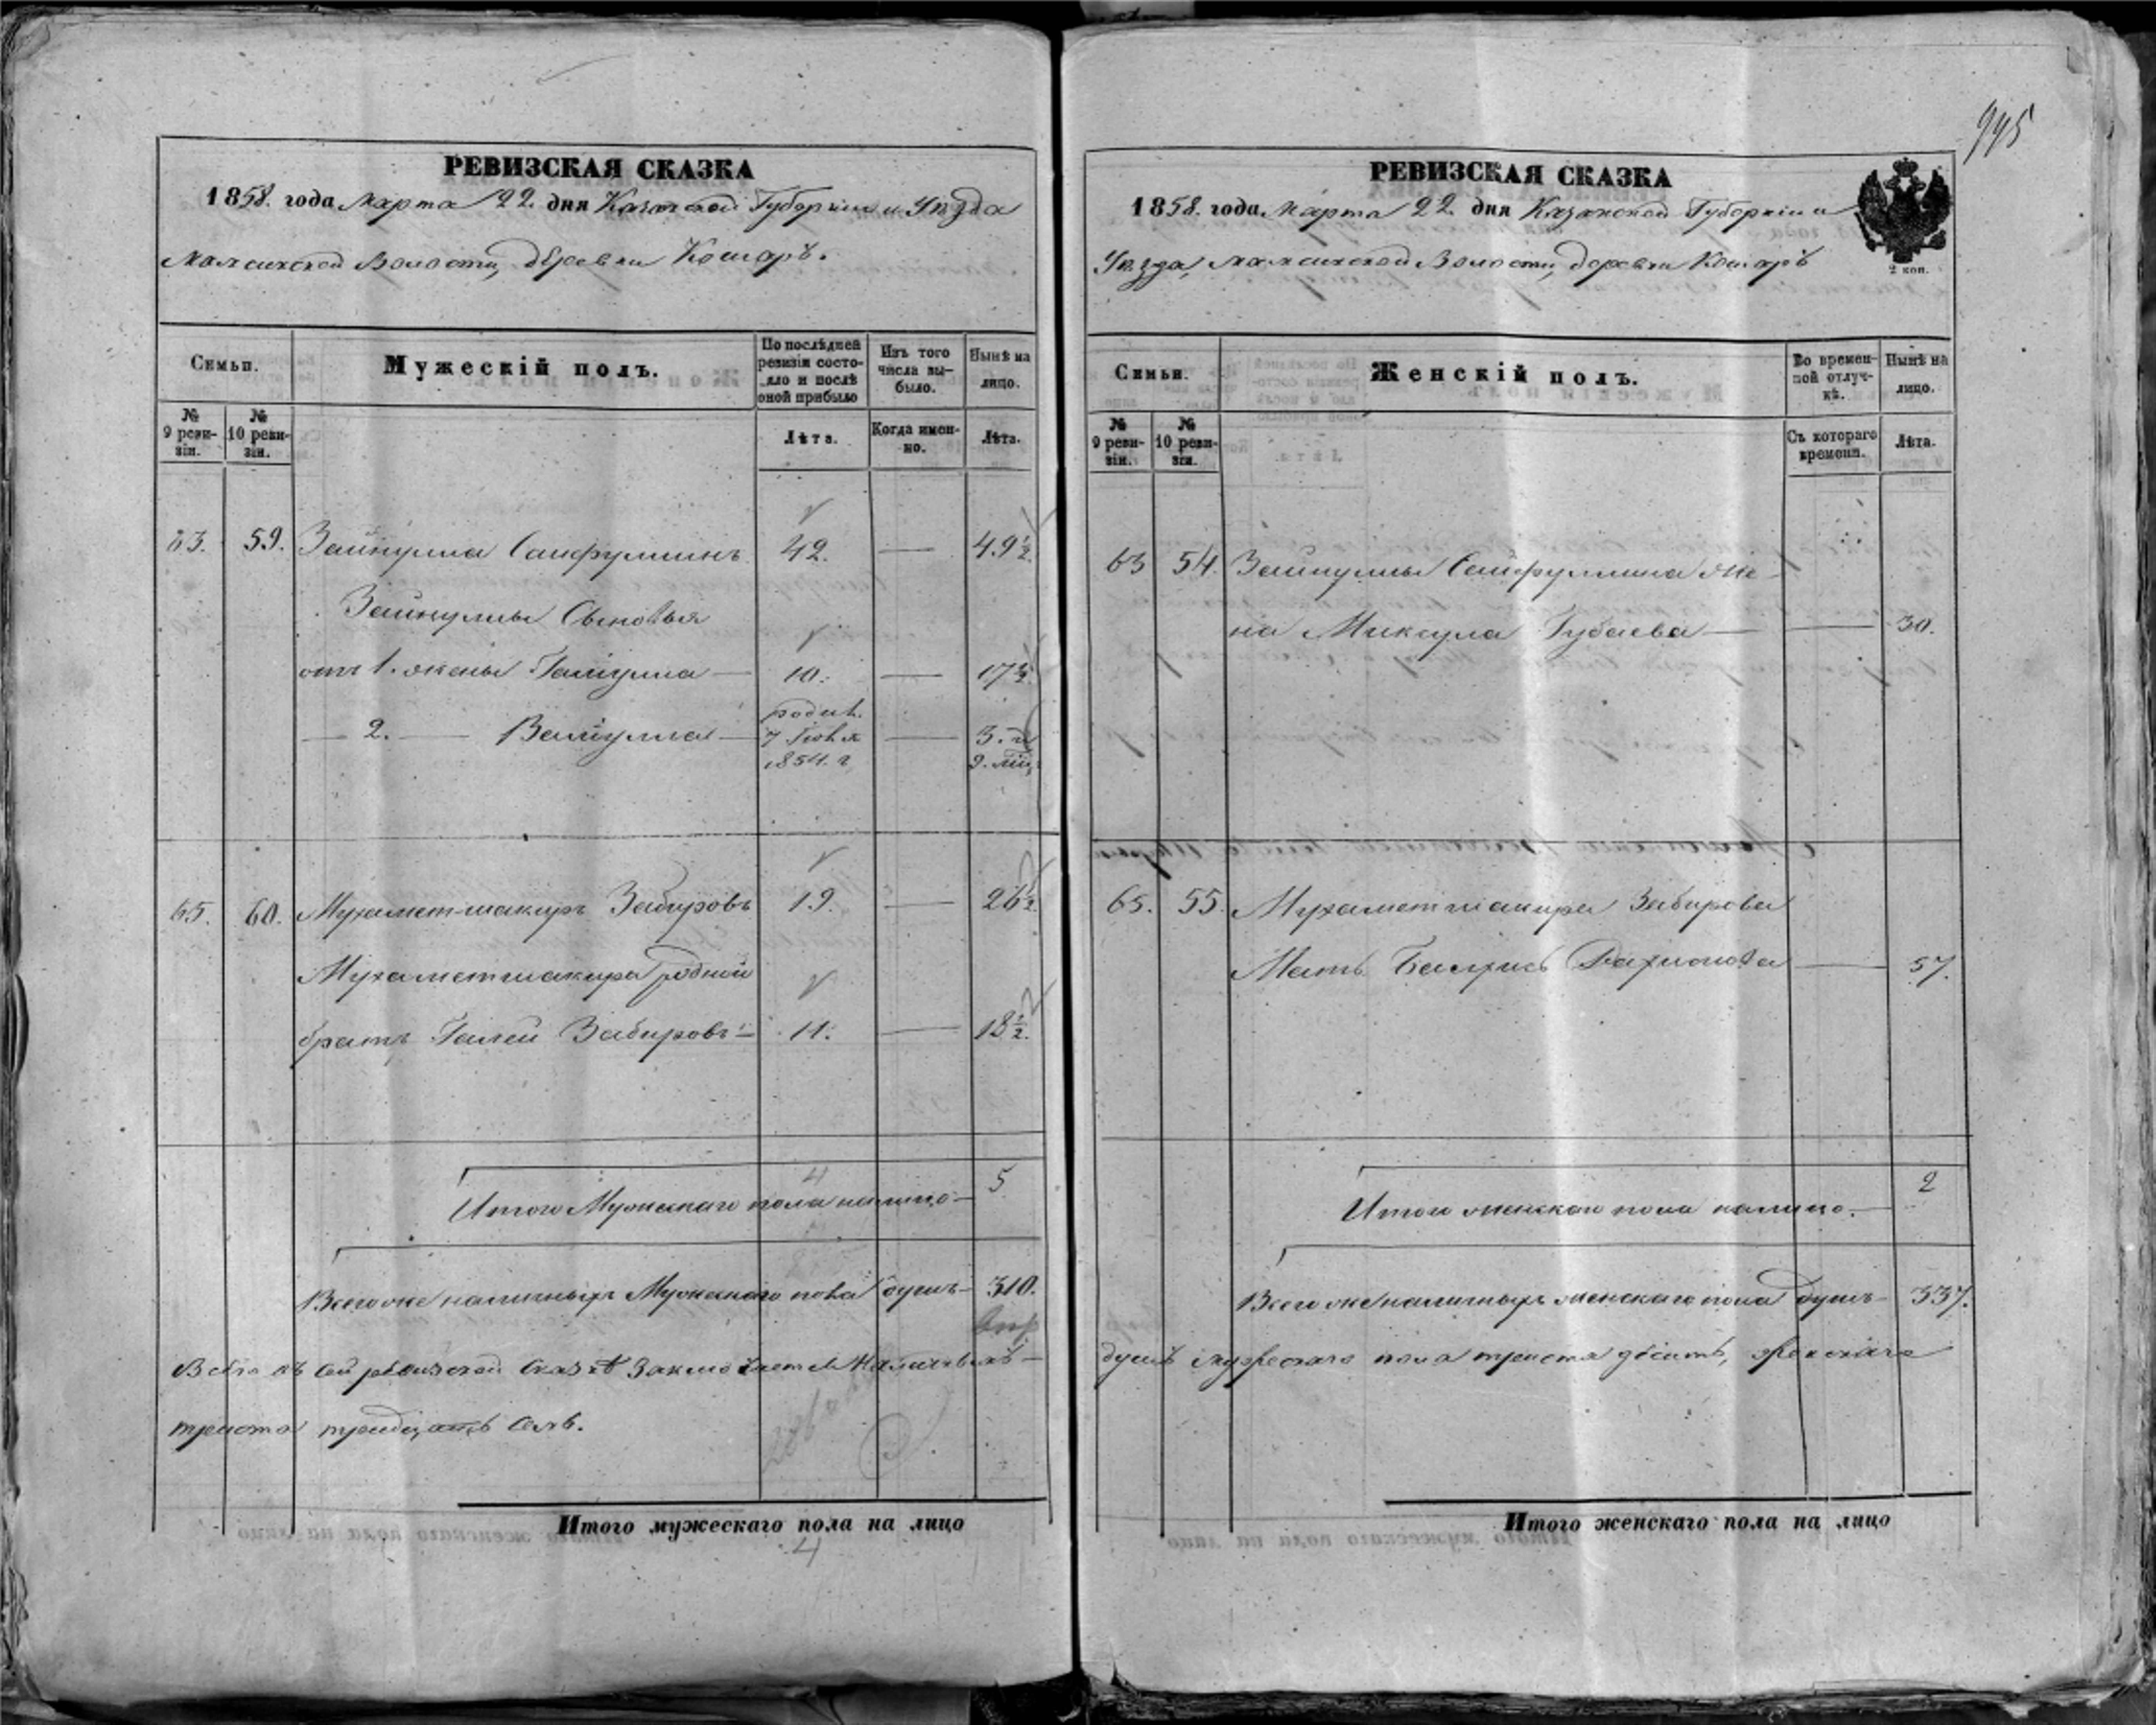 995
РЕВИЗСКАЯ СКАЗКА
1858. года Марта 22. дня Казанской Губернии и Уезда
Мамсинской Волости, деревни Кошаръ.
Семьи.
Мужескій полъ.
По послѣдней ревизіи состояло и послѣ оной прибыло
Изъ того числа выбыло.
Нынѣ на лицо.
№ 9 ревизіи.
№ 10 ревизіи.
Лѣта.
Когда именно.
Лѣта.
63. 59. Зайнулла Сайфуллинъ 42. — 49 1/2
Зайнуллы Сыновья
отъ 1. жены Галиулла — 10. — 17 1/2
— 2. — Валиулла — родил. 7 Июня 1854. г — 3. г 9. мѣц
65. 60. Мухамет-шакиръ Забировъ 19. — 26 1/2
Мухаметшакира родной
братъ Галей Забировъ — 11. — 18 1/2
4
Итого Мужескаго пола налицо — 5
Всего же наличныхъ Мужескаго пола душъ — 310.
Всего въ сей ревизской сказкѣ заключается наличныхъ —
триста тридцать семь.
Итого мужескаго пола на лицо
4
РЕВИЗСКАЯ СКАЗКА
1858. года Марта 22. дня Казанской Губерніи и
Уезда, Мамсинской Волости, деревни Кошаръ
2 коп.
Семьи.
Женскій полъ.
Во временной отлучкѣ.
Нынѣ на лицо.
№ 9 ревизіи.
№ 10 ревизіи.
Съ котораго времени.
Лѣта.
63 54. Зайнуллы Сайфуллина же-
на Микула Губаева — — 30.
65. 55. Мухаметшакира Забирова
Мать — 57.
Итого женскаго пола налицо. — 2
Всего же наличныхъ женскаго пола душъ — 337.
душъ мужескаго пола триста десять, женскаго
Итого женскаго пола на лицо